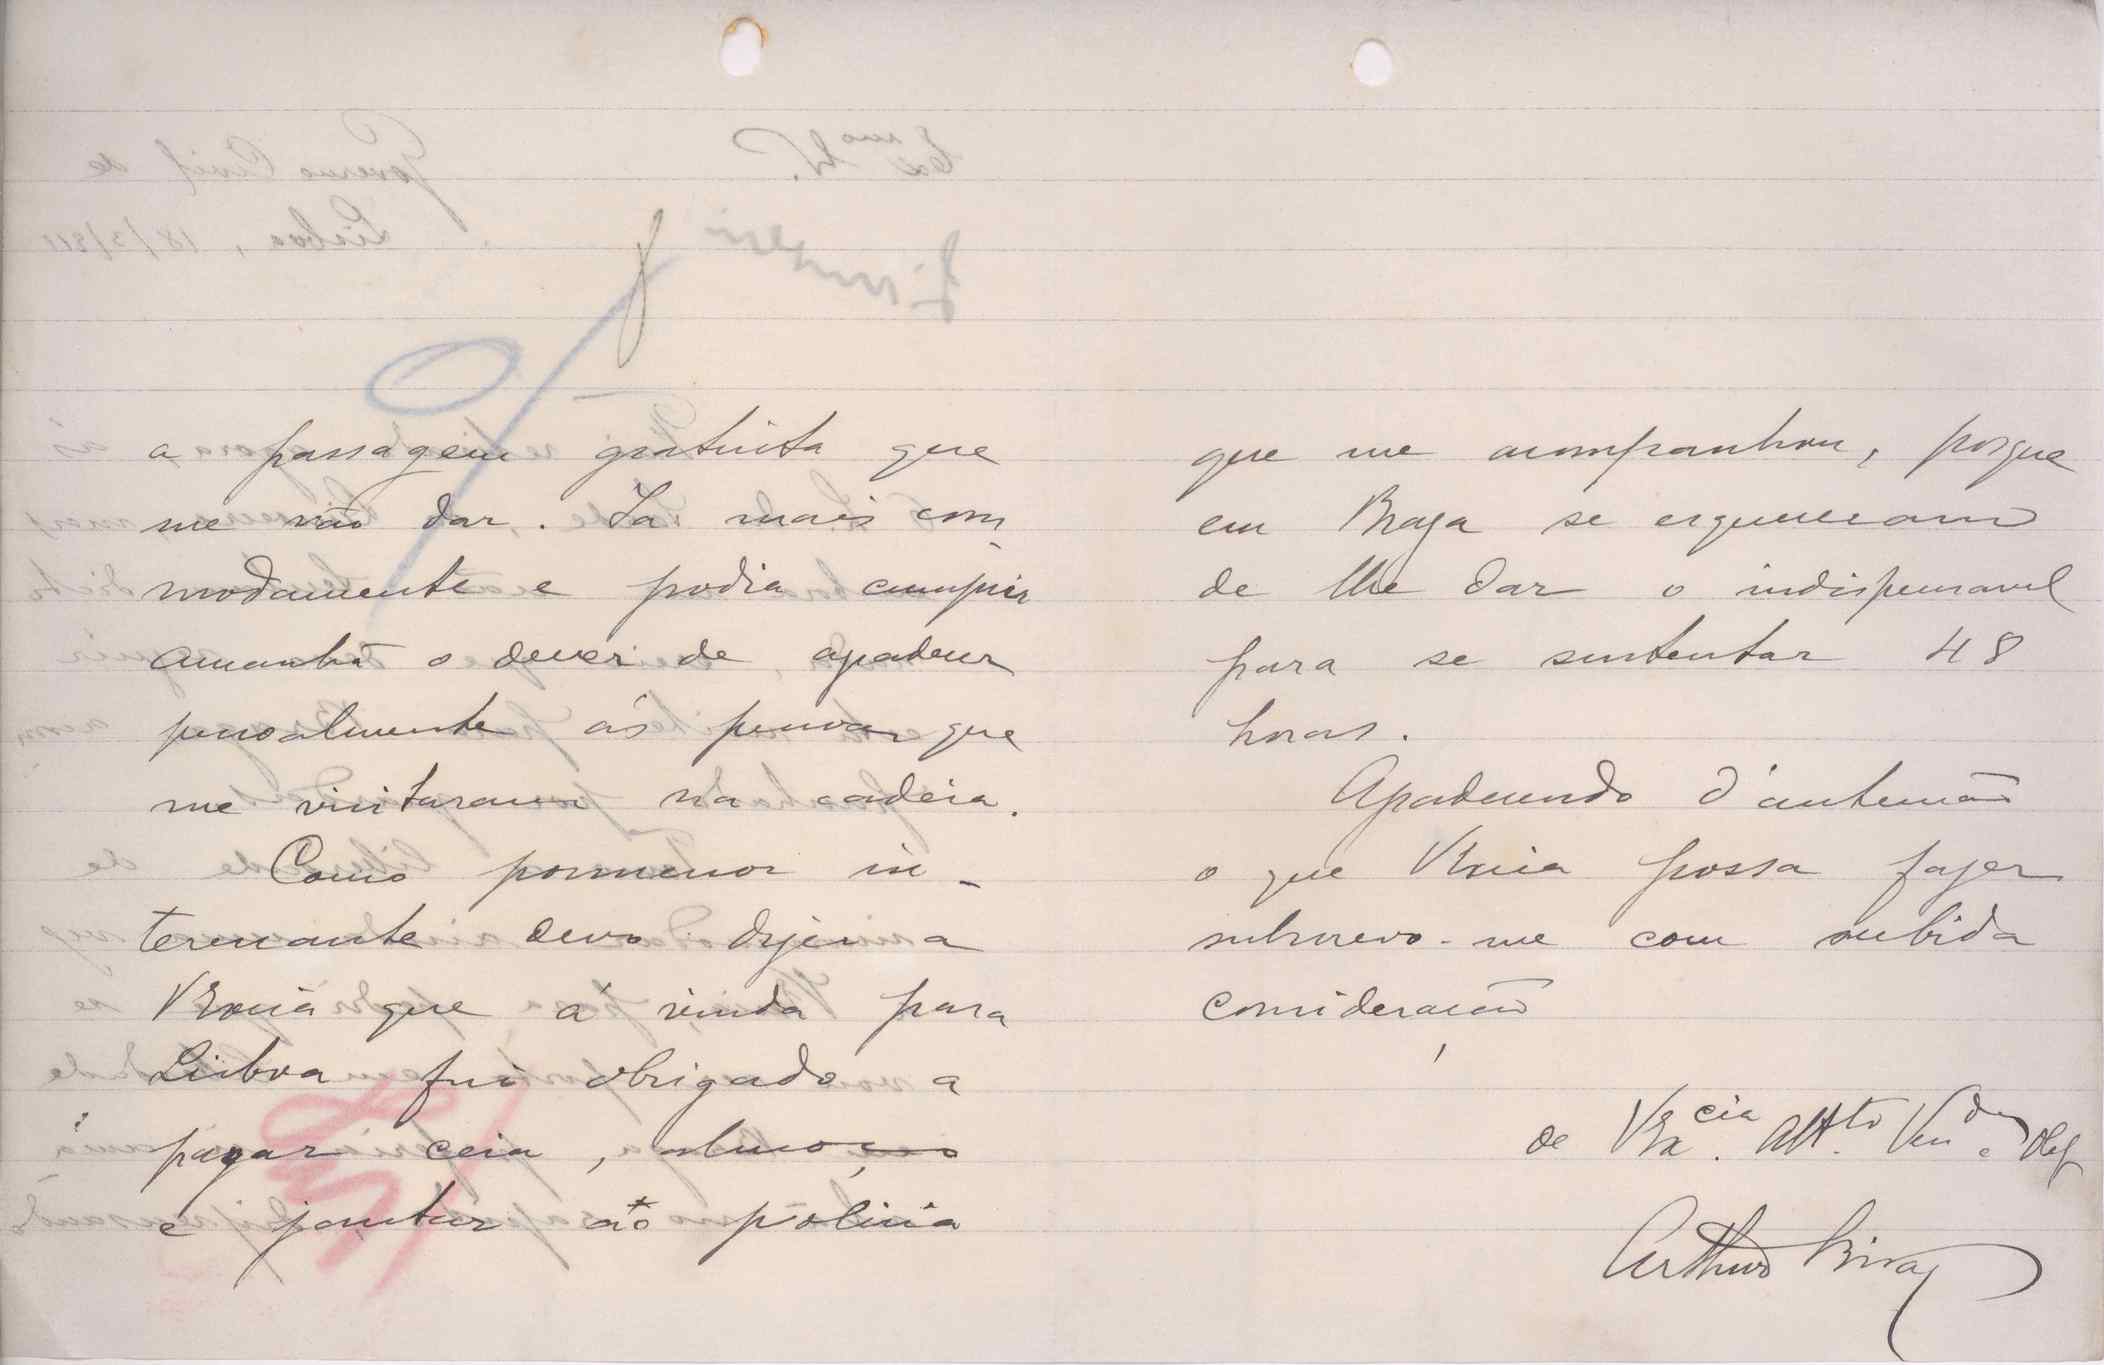 a passagem gratuita que
me vão dar. Ia mais com
modamente e podia cumprir
amanhã o dever de, agradecer
pessoalmente ás pessoas que
me visitaram na cadeia.
Como pormenor in-
teressante devo dizer a
V Excia que á vinda para
Lisboa fui obrigado a
pagar ceia, almoço
e jantar ao policia
que me acompanhou, porque
em Braga se esqueceram
de lhe dar o indispensavel
para se sustentar 48
horas.
Agradecendo d'antemão
o que V Excia possa fazer
subscrevo-me com subida
consideração
de V Ex.cia Att.to Ven.dor e Obg
Arthur
Exmo Sr.
Governo Civil de
Lisboa, 18/3/911